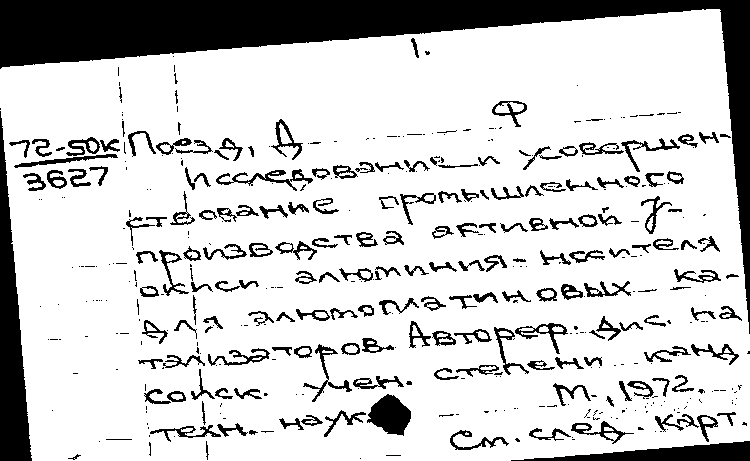 1.
Ф
72-50к Поезд, Д
3627
Исследование и усовершен-
ствование промышленного
производства активной γ-
окиси алюминия-носителя
для алюмоплатиновых ка-
тализаторов. Автореф. дис. на
соиск. учен. степени канд.
техн. наук. М., 1972.
См. след. карт.